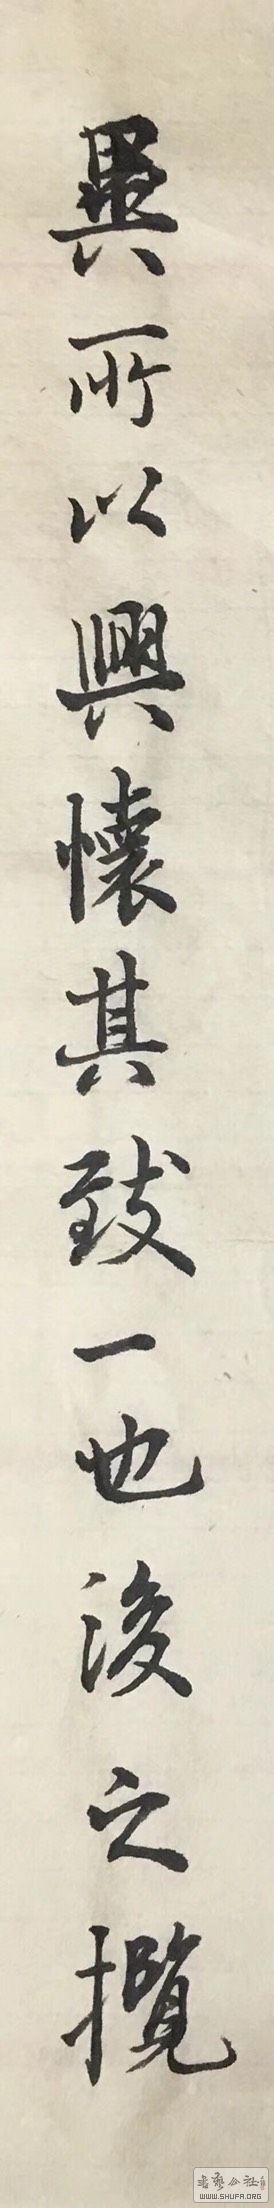 異所以興懷其致一也後之攬
書藝公社
WWW.SHUFA.ORG